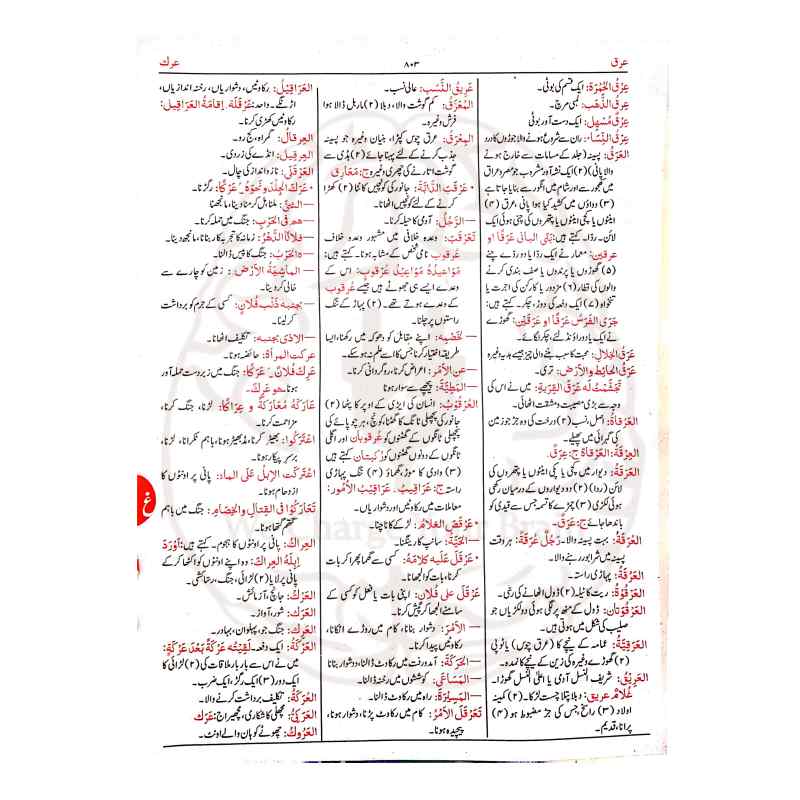 عرق
۸۰۳
عرك
عِرْقُ الحُمْرَة: ایک قسم کی بوٹی۔
عِرْقُ الذَّهَب: لمبی مرچ۔
عِرْقٌ مُسْهِل: ایک دست آور بوٹی
عِرْقُ النِّسَاء: ران سے شروع ہونے والا جوڑوں کا درد
العَرَقُ: پسینہ (جلد کے مسامات سے خارج ہونے
والا پانی) (۲) ایک نشہ آور مشروب جو مصر و عراق
میں کھجور سے اور شام میں انگور سے بنایا جاتا ہے
(۳) دواؤں میں کشید کیا ہوا پانی، عرق (۴)
اینٹوں یا کچی اینٹوں یا پتھروں کی چنی ہوئی ایک
لائن۔ ردّا۔ کہتے ہیں: بَنَى البانى عَرَقًا او
عرقين: معمار نے ایک ردّا یا دو ردّے چنے
(۵) گھوڑوں یا پرندوں یا صف بندی کرنے
والوں کی قطار (۶) مزدور یا کارکن کی اجرت یا
تنخواہ (۷) ایک دفعہ کی دوڑ، چکر۔ کہتے ہیں:
جَرَى الفَرَسُ عَرَقًا او عَرَقَيْنِ: گھوڑے
نے ایک یا دو راؤنڈ لئے، چکر لگائے۔
عَرَقُ الخِلَالِ: محبت کا سبب بننے والی چیز جیسے ہدیہ وغیرہ
عَرَقُ الحائِطِ والأرْض: تری۔
تَجَشَّمْتُ لَهُ عَرَقَ القِرْبَةِ: میں نے اس کی
وجہ سے بڑی مصیبت و مشقت اٹھائی۔
العَرْقَاةُ: اصل، نسب (۲) درخت کی وہ جڑ جو زمین
کی گہرائی میں پھیلے۔
العِرْقَةُ: العَرْقَاة ج: عِرَقٌ۔
العَرَقَةُ: دیوار میں کچی یا پکی اینٹوں یا پتھروں کی
لائن (ردا) (۲) دو دیواروں کے درمیان رکھی
ہوئی لکڑی (۳) چمڑے کا تسمہ جس سے قیدی کو
باندھا جائے ج: عَرَق۔
العُرَقَةُ: بہت پسینہ والا۔ رَجُلٌ عُرَقَةٌ: ہر وقت
پسینہ میں شرابور رہنے والا۔
العَرْقَةُ: پہاڑی راستہ۔
العَرْقُوَةُ: ریت کا ٹیلہ (۲) ڈول اٹھانے کی رسّی۔
العَرْقُوَتان: ڈول کے منھ پر لگی ہوئی دو لکڑیاں جو
صلیب کی شکل میں ہوتی ہیں۔
العَرَقِيَّةُ: عمامہ کے نیچے کا (عرق چوس) یا ٹوپی
(۲) گھوڑے وغیرہ کی زین کے نیچے کا نمدہ۔
العَرِيْقُ: شریف النسل آدمی یا اعلیٰ النسل گھوڑا۔
غُلامٌ عَرِيق: دبلا پتلا چست لڑکا۔ (۲) کمینہ
اولاد (۳) راسخ جس کی جڑ مضبوط ہو (۴)
پرانا، قدیم۔
عَرِيقُ النَّسَب: عالی نسب۔
المُعْرَقُ: کم گوشت والا، دبلا (۲) ماربل ڈالا ہوا
فرش وغیرہ۔
المِعْرَقُ: عرق چوس کپڑا، بنیان وغیرہ جو پسینہ
جذب کرنے کے لئے پہنا جائے (۲) ہڈی سے
گوشت اتارنے کی چھری وغیرہ ج: مَعَارِق
• عَرْقَبَ الدَّابَّةَ: جانور کی کونچیں کاٹنا (۲) کھڑا
کرنے کے لئے کونچیں اٹھانا۔
— الرَّجُلُ: آدمی کا حیلہ کرنا۔
تَعَرْقَبَ: وعدہ خلافی میں مشہور وعدہ خلاف
عرقوب نامی شخص کے مشابہ ہونا۔ کہتے ہیں:
مَوَاعِيْدُهُ مَوَاعِيْدُ عَرقوب: اس کے
وعدے ایسے ہی جھوٹے ہیں جیسے عُرقوب
کے وعدے ہوتے تھے۔ (۲) پہاڑ کے تنگ
راستوں پر جانا۔
— لخَصْمِهِ: اپنے مقابل کو دھوکہ میں رکھنا، ایسا
طریقہ اختیار کرنا جس کا اسے علم نہ ہو سکے۔
— عن الأمْرِ: اعراض کرنا، روگردانی کرنا۔
— المَطِيَّةَ: پیچھے سے سوار ہونا
العُرْقُوبُ: انسان کی ایڑی کے اوپر کا پٹھا (۲)
جانور کی پچھلی ٹانگ کا گھٹنا، کونچ، ہر چوپائے کی
پچھلی ٹانگوں کے گھٹنوں کو عُرقوبان اور اگلی
ٹانگوں کے دونوں گھٹنوں کو رُكبتان کہتے ہیں
(۳) وادی کا موڑ، گھماؤ (۴) تنگ پہاڑی
راستہ ج: عَرَاقِيبُ۔ عَرَاقِيْبُ الأمُور:
معاملات میں رکاوٹیں اور دشواریاں۔
• عَرْقَصَ الغُلامُ: لڑکے کا ناچنا۔
— الحَيَّةُ: سانپ کا رینگنا۔
• عَرْقَلَ عَلَيه كلامَهُ: کسی سے گھما پھرا کر بات
کرنا، بات کو الجھانا۔
عَرْقَلَ على فُلانٍ: اپنی بات یا فعل کو کسی کے
سامنے الجھا کر پیش کرنا۔
— الأمْرَ: دشوار بنانا، کام میں روڑے اٹکانا،
رکاوٹیں پیدا کرنا۔
— الحَرَكَةَ: آمد و رفت میں رکاوٹ ڈالنا، دشوار بنانا
— المَسَاعِىَ: کوششوں میں رخنہ ڈالنا۔
— المَسِيْرَةَ: راہ میں رکاوٹ ڈالنا۔
تَعَرْقَلَ الأمْرُ: کام میں رکاوٹ پڑنا، دشوار ہونا،
پیچیدہ ہونا۔
العَرَاقِيْلُ: رکاوٹیں، دشواریاں، رخنہ اندازیاں،
اڑنگے۔ واحد: عَرْقَلَة۔ إقامَةُ العَرَاقِيلِ:
رکاوٹیں کھڑی کرنا۔
العِرقالُ: گمراہ، کج رو۔
العِرقِيلُ: انڈے کی زردی۔
العَرْقَلَى: ناز و انداز کی چال۔
• عَرَكَ الجِلْدَ ونَحْوَهُ ُ عَرْكًا: رگڑنا۔
— الشيءَ: ملنا، مل کر مٹا دینا، مانجھنا
— هم فى الحَرْبِ: جنگ میں حملہ کرنا۔
— فلانًا الدَّهْرُ: زمانہ کا تجربہ کار بنانا، مانجھ دینا۔
— ه الحَرْبُ: جنگ کا پیس ڈالنا۔
— المَاشِيَةُ الأرْضَ: زمین کو چارے سے
خالی کر دینا۔
— بجنبه ذَنْبَ فُلانٍ: کسی کے جرم کو برداشت
کر لینا۔
— الأذى بجنبه: تکلیف اٹھانا۔
عركت المرأة: حائضہ ہونا۔
عَرِكَ فُلانٌ َ عَرَكًا: جنگ میں زبردست حملہ آور
ہونا۔ هو عَرِكٌ۔
عَارَكَهُ مُعَارَكَةً و عِرَاكًا: لڑنا، جنگ کرنا،
مزاحمت کرنا۔
اعْتَرَكُوا: بھیڑ کرنا، مڈبھیڑ ہونا، باہم ٹکرانا، لڑنا،
برسرِ پیکار ہونا۔
اعْتَرَكَتِ الإبِلُ عَلَى الماءِ: پانی پر اونٹوں کا
ازدحام ہونا۔
تَعَارَكُوا فى القِتَالِ والخِصَامِ: جنگ میں باہم
گتھم گتھا ہونا۔
العِرَاكُ: پانی پر اونٹوں کا ہجوم۔ کہتے ہیں: أوْرَدَ
إبِلَهُ العِرَاكَ: وہ اپنے اونٹوں کو اکٹھا کر کے
پانی پر لایا (۲) لڑائی، جنگ، رسّا کشی۔
العَرْكُ: جانچ، آزمائش۔
العَرَك: شور، آواز۔
العَرِك: جنگ جو، پہلوان، بہادر۔
العَرْكَةُ: ایک دفعہ۔ لَقِيْتُه عَرْكَةً بَعْدَ عَرْكَةٍ:
میں نے اس سے بار بار ملاقات کی (۲) لڑائی کا
ایک دور (۳) ایک رگڑ، ایک ضرب۔
العُرَكَةُ: تکلیف برداشت کرنے والا۔
العَرَكِىُّ: مچھلی کا شکاری، مچھیرا ج: عَرَك
العَرُوكُ: چھوٹے کوہان والے اونٹ۔
غ